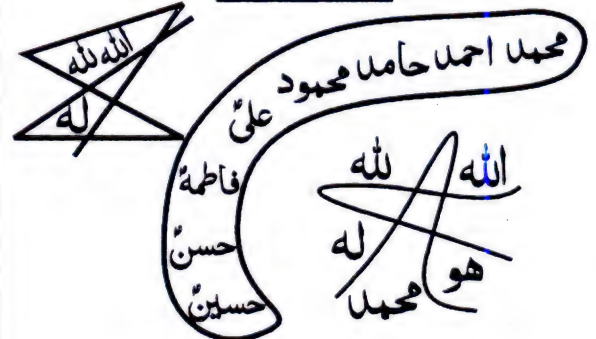 الله لله
له
محمد احمد حامد محمود
علیؑ
فاطمهؑ
حسنؑ
حسینؑ
الله
لله
له
هو
محمد